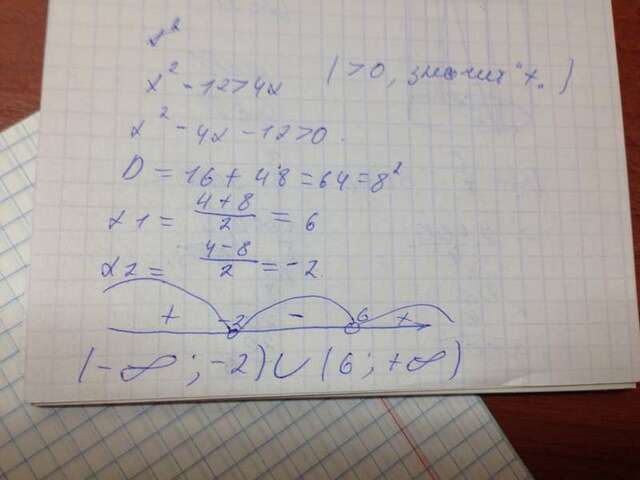 x²
x² - 12 > 4x (>0, значит "+")
x² - 4x - 12 > 0.
D = 16 + 48 = 64 = 8²
x1 = (4+8)/2 = 6
x2 = (4-8)/2 = -2.
+ -2 - 6 +
(-∞; -2) ∪ (6; +∞)